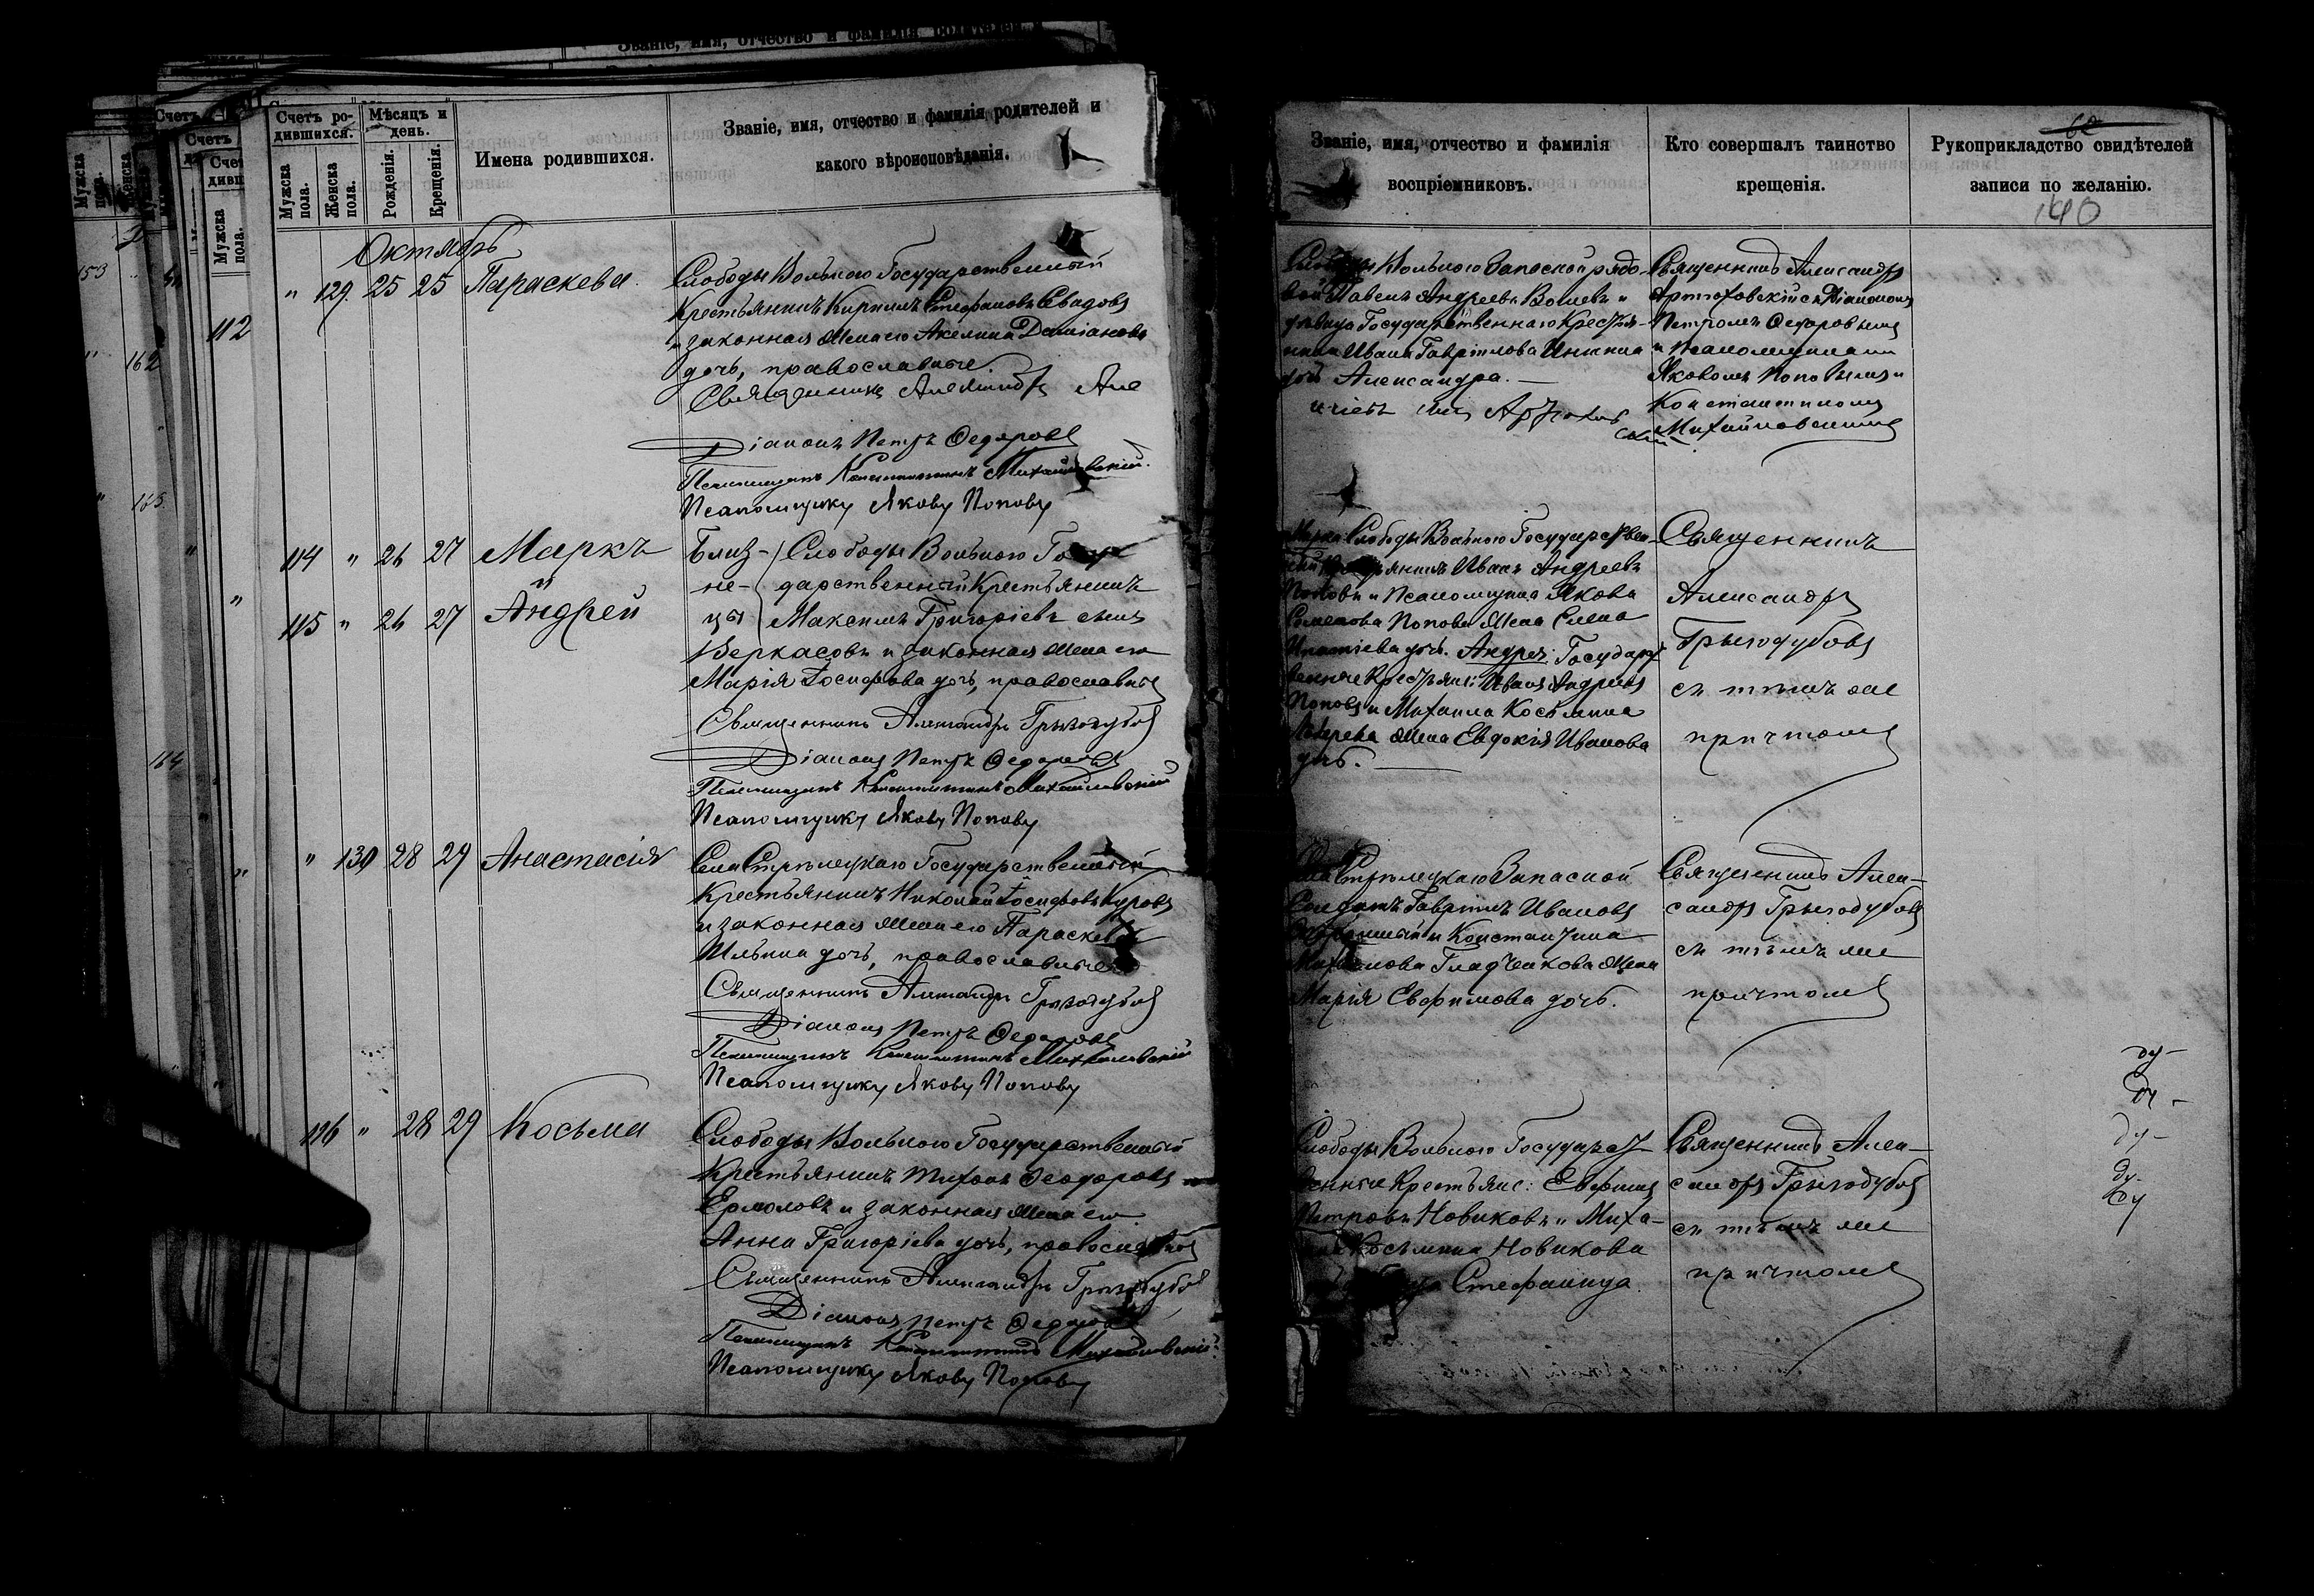 Званіе, имя, отчество и фамилія родителей
Счетъ ро-
дившихся.
Мѣсяцъ и
день.
Мужска
пола.
Женска
пола.
Рожденія.
Крещенія.
Имена родившихся.
Званіе, имя, отчество и фамилія родителей и
какого вѣроисповѣданія.
Октябрь
" 129 25 25 Параскева
Слободы Вольного Государственный
Крестьянинъ Кириллъ Стефановъ
и законная жена его Акелина Даміанова
дочь, православные.
Священникъ Александръ
Діаконъ Петръ Федоровъ
Псаломщикъ Константинъ Михайловскій.
Псаломщикъ Яковъ Поповъ
114 " 26 27 Маркъ
и
115 " 26 27 Андрей
Близ-
не-
цы
Слободы Вольного Госу-
дарственный Крестьянинъ
Максимъ Григоріевъ сынъ
Веркасовъ и законная жена его
Марія Іосифова дочь, православные
Священникъ Александръ Грызодубовъ
Діаконъ Петръ Федоровъ
Псаломщикъ Константинъ Михайловскій
Псаломщикъ Яковъ Поповъ
" 130 28 29 Анастасія
Села Стрѣлецкаго Государственный
Крестьянинъ Николай Іосифовъ Куровъ
и законная жена его Параскева
Ильина дочь, православные
Священникъ Александръ Грызодубовъ
Діаконъ Петръ Федоровъ
Псаломщикъ Константинъ Михайловскій
Псаломщикъ Яковъ Поповъ
116 " 28 29 Косьма
Слободы Вольного Государственный
Крестьянинъ Тихонъ Ѳеодоровъ
Ермоловъ и законная жена его
Анна Григоріева дочь, православные
Священникъ Александръ Грызодубовъ
Діаконъ Петръ Федоровъ
Псаломщикъ Константинъ Михайловскій
Псаломщикъ Яковъ Поповъ
Званіе, имя, отчество и фамилія
воспріемниковъ.
Кто совершалъ таинство
крещенія.
Рукоприкладство свидѣтелей
записи по желанію.
140
Слободы Вольного Запасной рядо-
вой Павелъ Андреевъ и
дѣвица Государственнаго Крестья-
нина Ивана Гавріилова
дочь Александра.
Священникъ Александръ
Артюховскій съ Діакономъ
Петромъ Федоровымъ
и Псаломщиками
Яковомъ Поповымъ и
Константиномъ
Михайловскимъ
Марка: Слободы Вольного Государствен-
ный Крестьянинъ Иванъ Андреевъ
Поповъ и Псаломщика Якова
Семенова Попова жена Елена
Игнатіева дочь. Андрея: Государст-
венные Крестьяне: Иванъ Андреевъ
Поповъ и Михаила Косьмина
жена Евдокія Иванова
дочь.
Священникъ
Александръ
Грызодубовъ
съ тѣмъ же
причтомъ
Села Стрѣлецкаго Запасной
Солдатъ Гавріилъ Ивановъ
и Константина
Михайлова Гладченкова жена
Марія Евфимова дочь.
Священникъ Алек-
сандръ Грызодубовъ
съ тѣмъ же
причтомъ
Слободы Вольного Государст-
венные Крестьяне: Евфимъ
Петровъ Новиковъ и Миха-
ила Косьмина Новикова
Стефанида.
Священникъ Алек-
сандръ Грызодубовъ
съ тѣмъ же
причтомъ